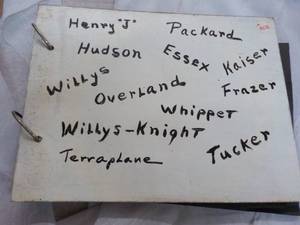 Henry "J" Packard
Hudson Essex Kaiser
Willys Overland Frazer
Whippet
Willys-Knight
Terraplane Tucker